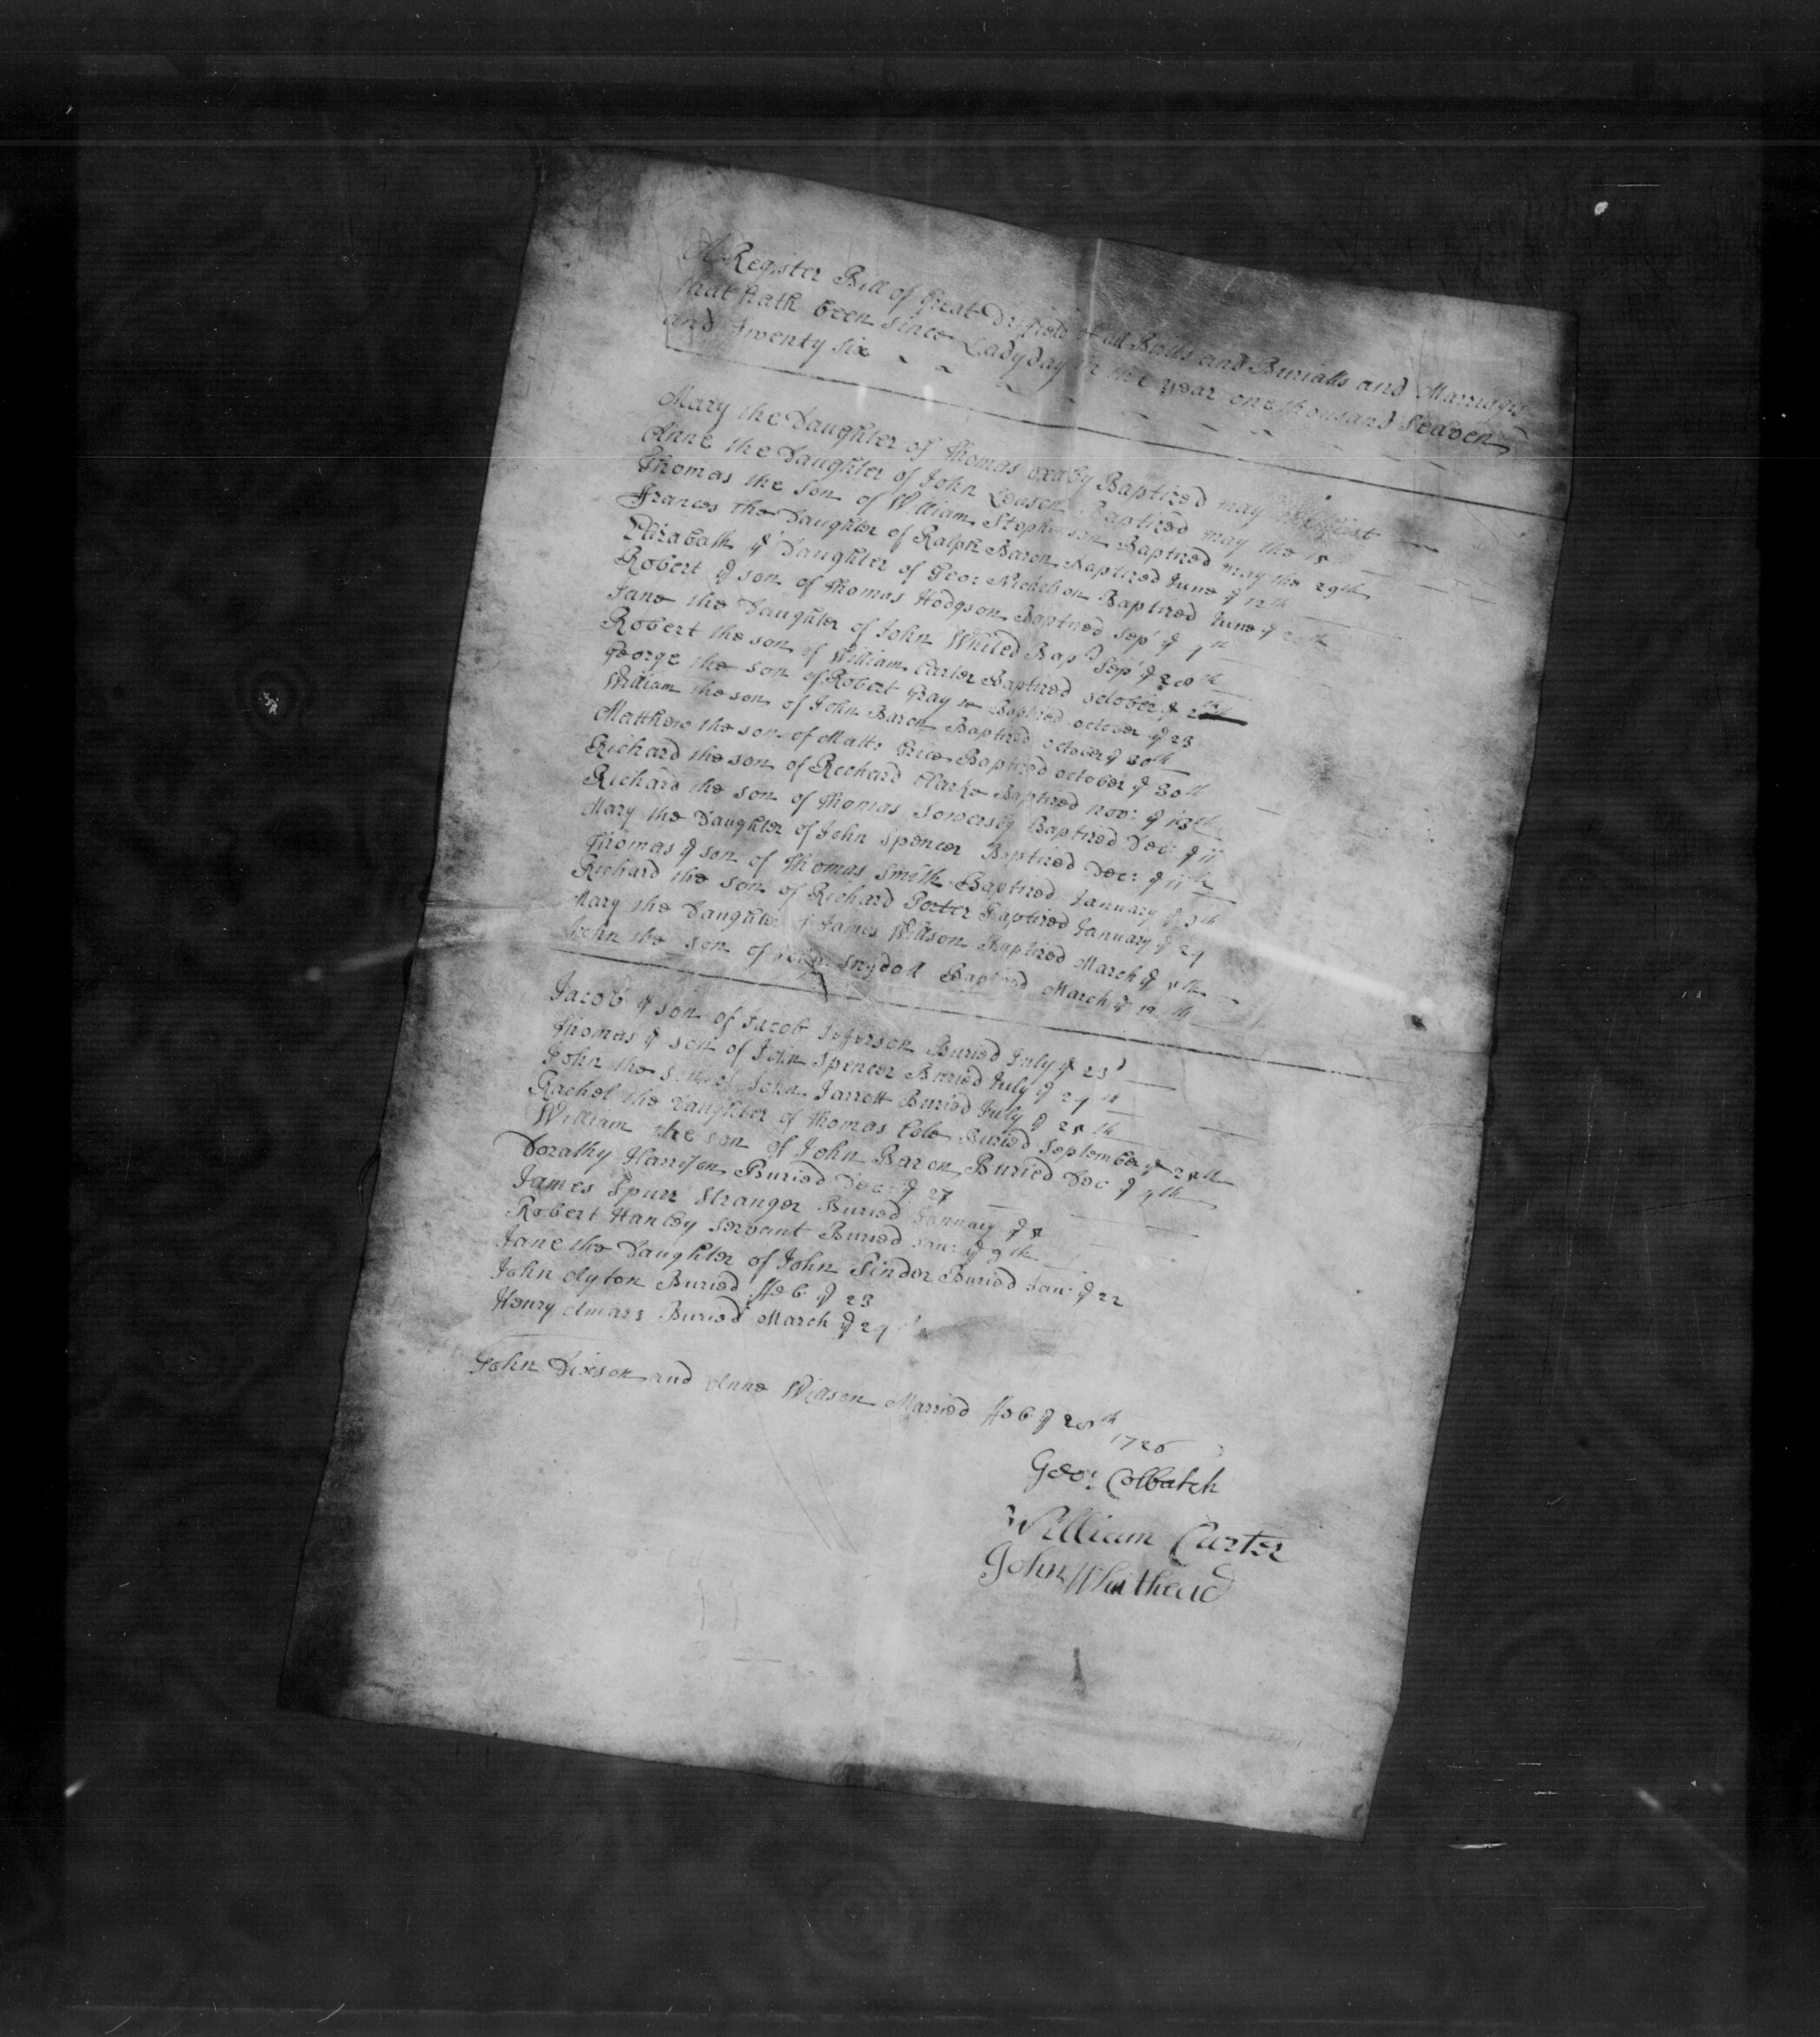 A Register Bill of Great Drifield of all Births and Burialls and Marriages
that hath been since Ladyday in the year one thousand Seaven
and Twenty six
Mary the Daughter of Thomas Oxaby Baptized may
Anne the Daughter of John Leason Baptized may the 15
Thomas the son of William Stephenson Baptized may the 29th
Frances the Daughter of Ralph Baron Baptized June ye 12th
Elizabeth ye Daughter of Geo: Nichelson Baptized June ye
Robert ye son of Thomas Hodgson Baptized Sepr ye 4th
Jane the Daughter of John Whited Bapd Sepr ye 28th
Robert the son of William Carter Baptized october ye
George the son of Robert Grayson Baptized october ye 23
William the son of John Baron Baptized october ye 30th
Matthew the son of Matt: Grice Baptized october ye 30th
Richard the son of Richard Clarke Baptized Nov: ye 13th
Richard the son of Thomas Sowersby Baptized Dec: ye 11
Mary the Daughter of John Spencer Baptized Dec: ye 11th
Thomas ye son of Thomas Smith Baptized January ye 9th
Richard the son of Richard Porter Baptized January ye 29
Mary the Daughter of James Willson Baptized March ye 5th
John the son of Snydall Baptized March ye 12th
Jacob ye son of Jacob Jefferson Buried July ye 23d
Thomas ye son of John Spencer Buried July ye 24th
John the son of John Jarrett Buried July ye 25th
Rachel the Daughter of Thomas Cole Buried September ye 28th
William the son of John Baron Buried Dec ye 4th
Dorathy Harrison Buried Dec: ye 27
James Spurr Stranger Buried January ye 8
Robert Hanley Servant Buried Jan: ye 9th
Jane the Daughter of John Pinder Buried Jan: ye 22
John Ayton Buried ffeb: ye 23
Henry Amars Buried March ye 24
John Dixson and Anne Willson Married ffeb: ye 28th
1726
Geo: Colbatch
William Carter
John Whithead